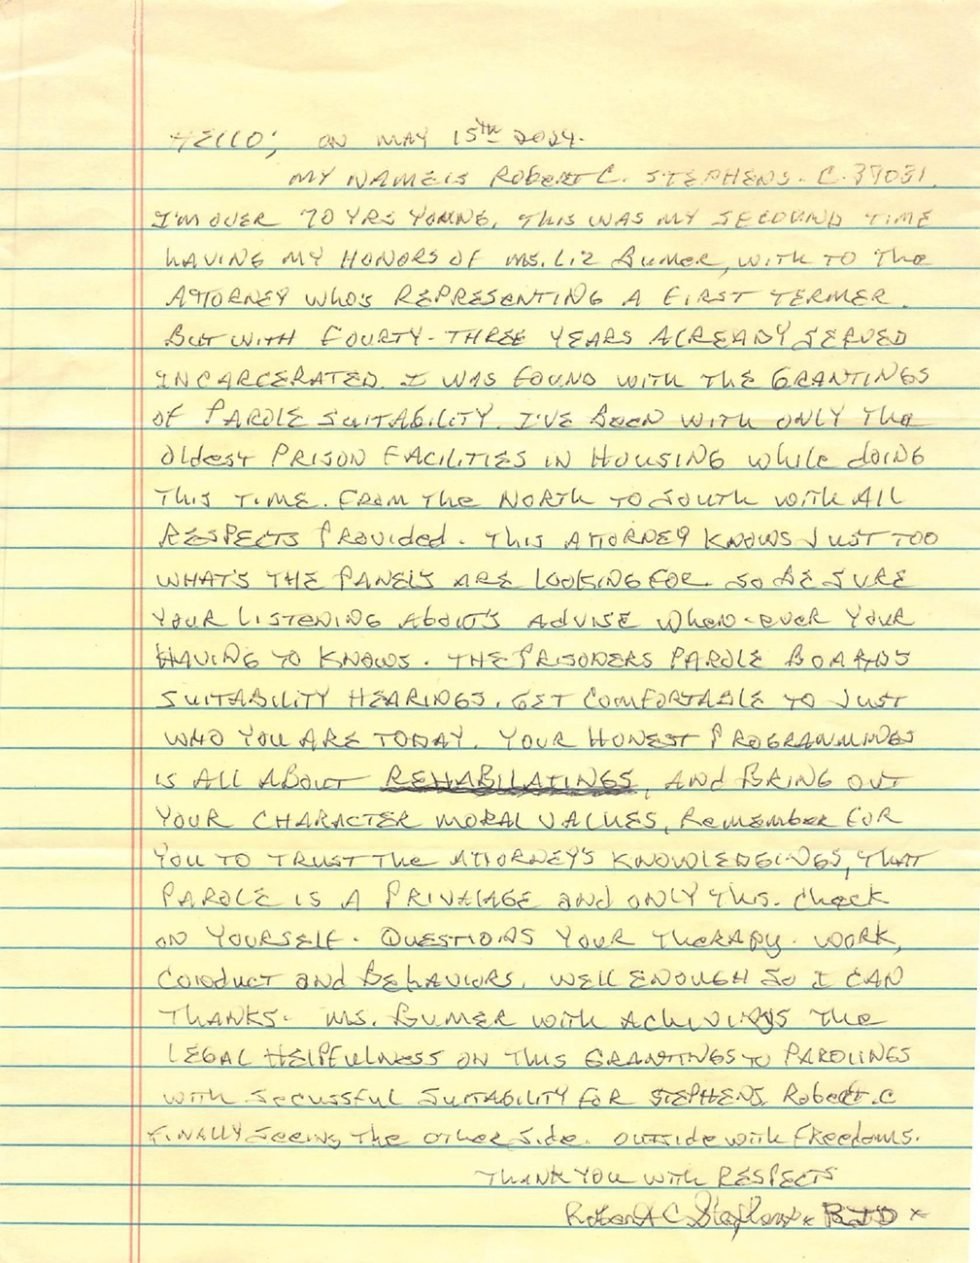 HELLO; ON MAY 15TH 2024.
MY NAME IS ROBERT C. STEPHENS. C-39031.
I'M OVER 70 YRS YOUNG, THIS WAS MY SECOUND TIME
HAVING MY HONORS OF MS. LIZ BUMER, WITH TO THE
ATTORNEY WHO'S REPRESENTING A FIRST TERMER.
BUT WITH FOURTY-THREE YEARS ALREADY SERVED
INCARCERATED. I WAS FOUND WITH THE GRANTINGS
OF PAROLE SUITABILITY. I'VE BEEN WITH ONLY THE
OLDEST PRISON FACILITIES IN HOUSING WHILE DOING
THIS TIME. FROM THE NORTH TO SOUTH WITH ALL
RESPECTS PROVIDED. THIS ATTORNEY KNOWS JUST TOO
WHAT'S THE PANELS ARE LOOKING FOR. SO BE SURE
YOUR LISTENING ABOUT'S ADVISE WHEN-EVER YOUR
HAVING TO KNOWS. THE PRISONERS PAROLE BOARDS
SUITABILITY HEARINGS. GET COMFORTABLE TO JUST
WHO YOU ARE TODAY. YOUR HONEST PROGRAMMINGS
IS ALL ABOUT REHABILATINGS, AND BRING OUT
YOUR CHARACTER MORAL VALUES, REMEMBER FOR
YOU TO TRUST THE ATTORNEY'S KNOWLEDGINGS, THAT
PAROLE IS A PRIVALAGE AND ONLY THIS. CHECK
ON YOURSELF. QUESTIONS YOUR THERAPY. WORK,
CONDUCT AND BEHAVIORS. WELL ENOUGH SO I CAN
THANKS. MS. BUMER WITH THE
LEGAL HELPFULNESS ON THIS GRANTINGS TO PAROLINGS
WITH SECUSSFUL SUITABILITY FOR STEPHENS, ROBERT.C
FINALLY SEEING THE OTHER SIDE. OUTSIDE WITH FREEDOMS.
THANK YOU WITH RESPECTS
Robert C. Stephens